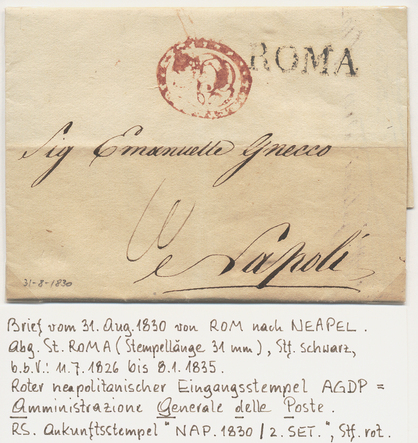 ROMA
Sig Emanuelle Gnecco
Napoli
31-8-1830
Brief vom 31. Aug. 1830 von ROM nach NEAPEL.
Abg. St. ROMA (Stempellänge 31 mm), Stf. schwarz,
b.b.V.: 11.7.1826 bis 8.1.1835.
Roter neapolitanischer Eingangsstempel AGDP =
Amministrazione Generale delle Poste.
RS. Ankunftsstempel "NAP. 1830 / 2. SET.", Stf. rot.